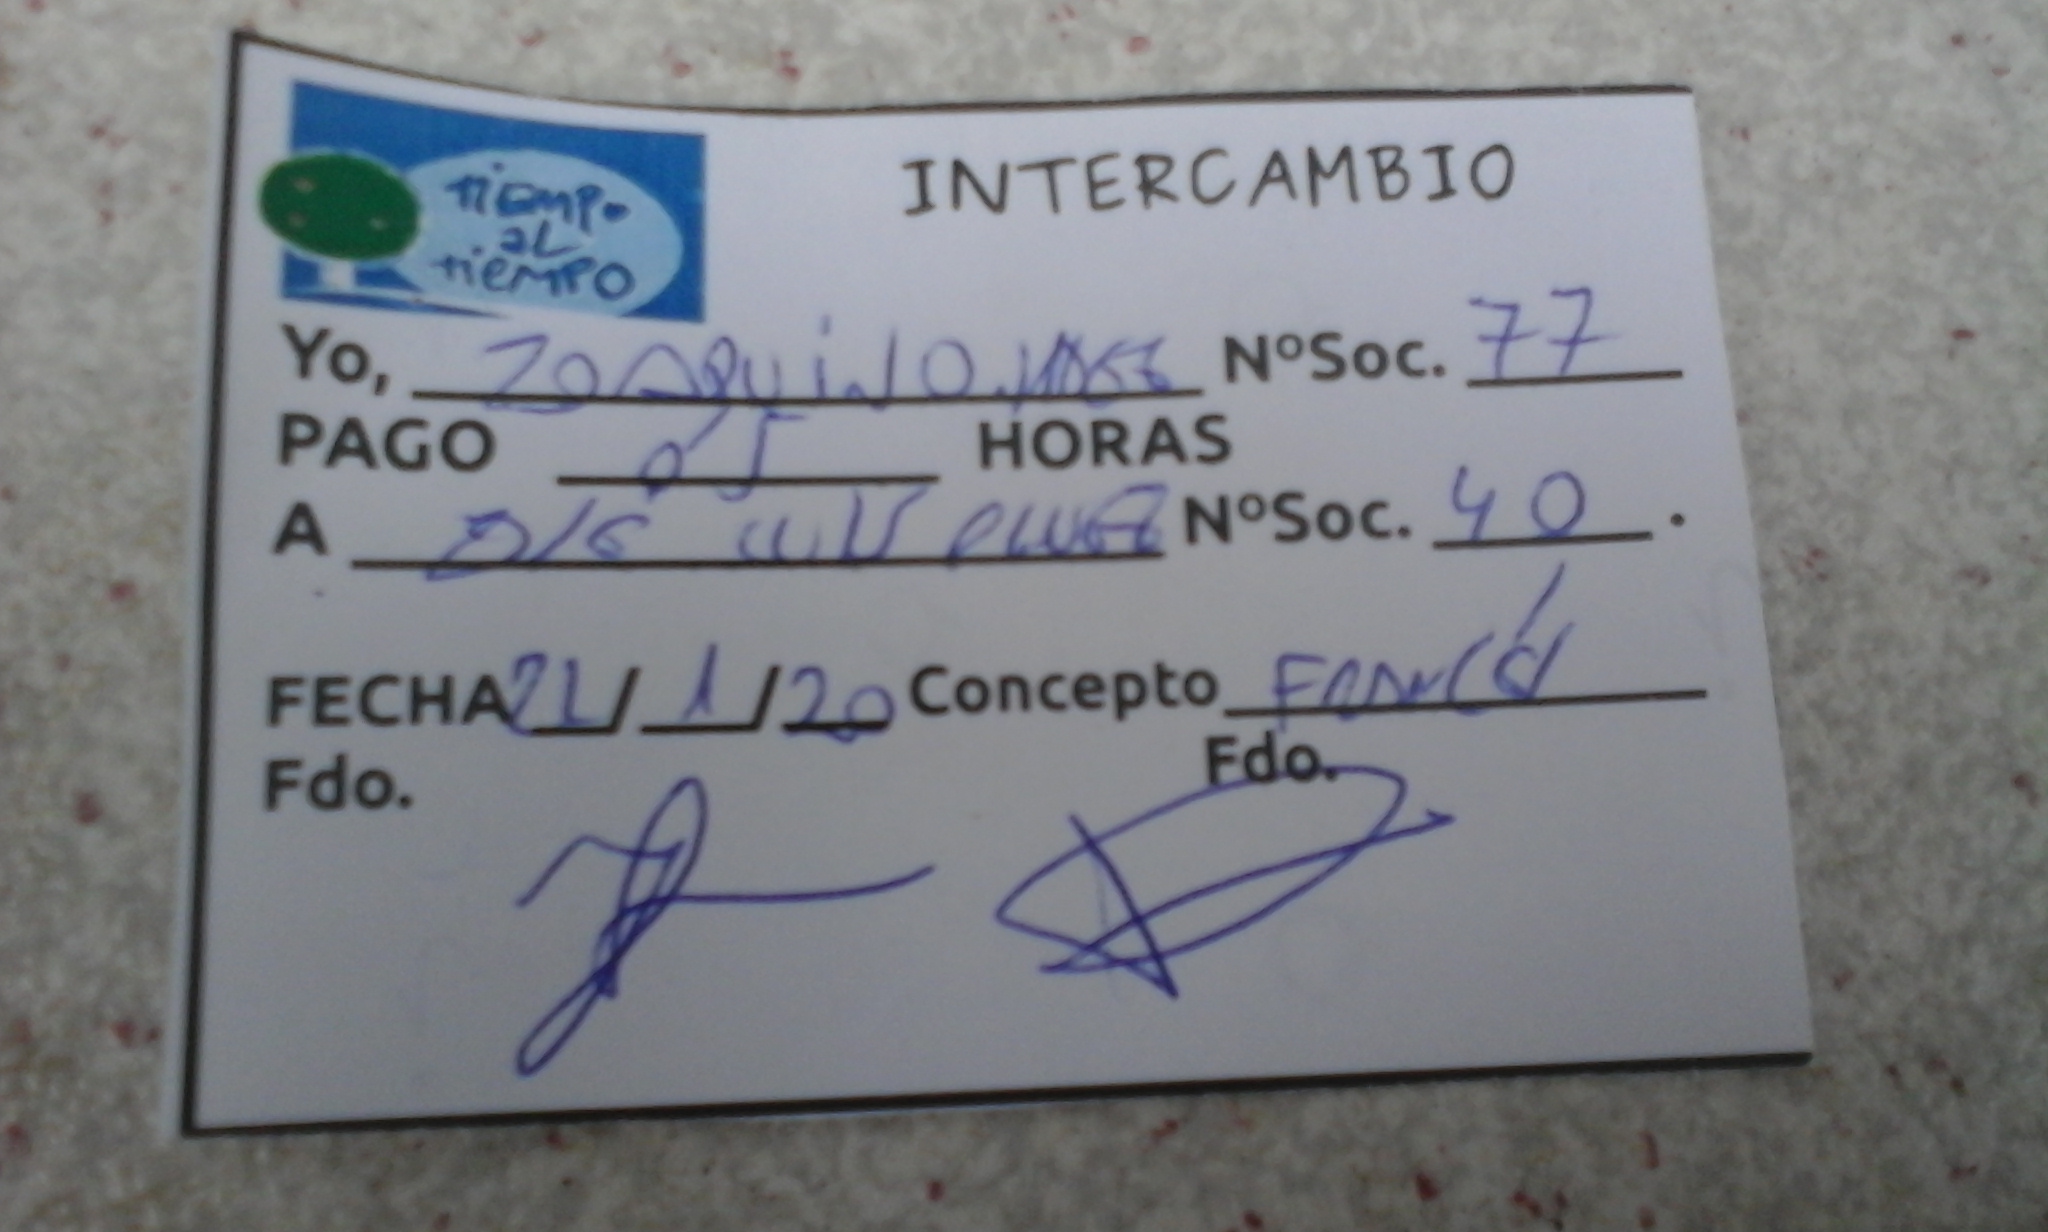 tiempo
al
tiempo
INTERCAMBIO
Yo, NºSoc. 77
PAGO 0'5 HORAS
A NºSoc. 40.
FECHA 21/1/20 Concepto Francés
Fdo. Fdo.